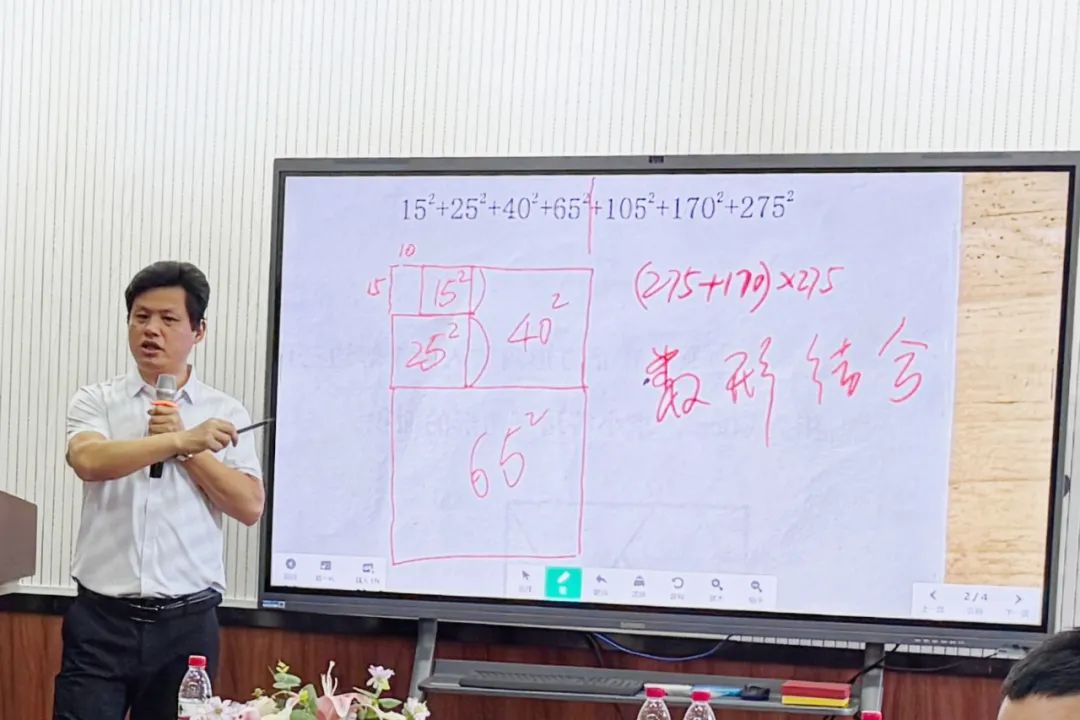 15²+25²+40²+65²+105²+170²+275²
10
15
15²
25²
40²
65²
(275+170)×275
数形结合
2/4
上一页
下一页